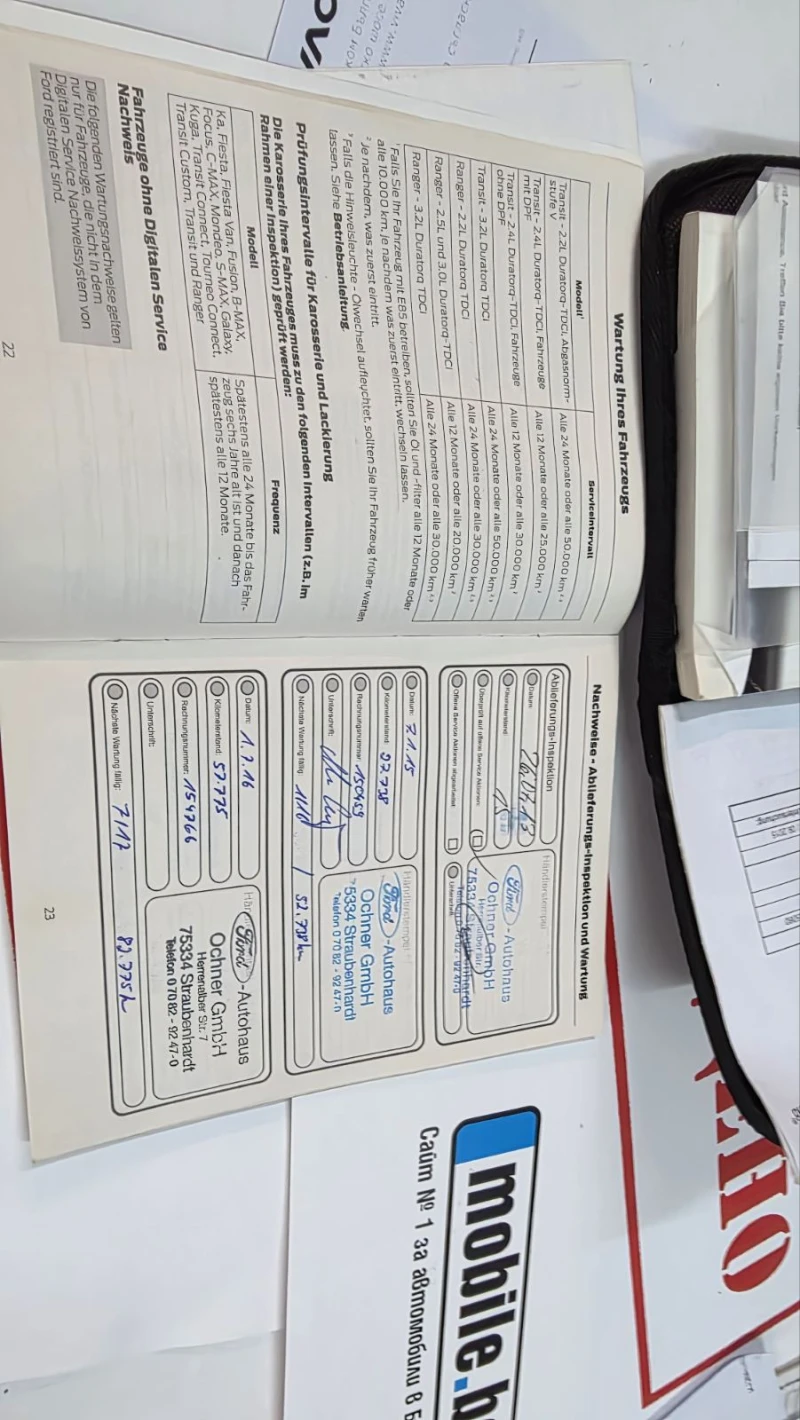 Wartung Ihres Fahrzeugs
Modell¹ Serviceintervall
Transit - 2.2L Duratorq-TDCi, Abgasnorm-
stufe V Alle 24 Monate oder alle 50.000 km
Transit - 2.4L Duratorq-TDCi, Fahrzeuge
mit DPF Alle 12 Monate oder alle 25.000 km
Transit - 2.4L Duratorq-TDCi, Fahrzeuge
ohne DPF Alle 12 Monate oder alle 30.000 km
Transit - 3.2L Duratorq TDCi Alle 24 Monate oder alle 50.000 km
Ranger - 2.2L Duratorq TDCi Alle 24 Monate oder alle 30.000 km
Ranger - 2.5L und 3.0L Duratorq-TDCi Alle 12 Monate oder alle 20.000 km
Ranger - 3.2L Duratorq TDCi Alle 24 Monate oder alle 30.000 km
¹ Falls Sie Ihr Fahrzeug mit E85 betreiben, sollten Sie Öl und -filter alle 12 Monate oder
alle 10.000 km, je nachdem was zuerst eintritt, wechseln lassen.
² Je nachdem, was zuerst eintritt.
³ Falls die Hinweisleuchte - Ölwechsel aufleuchtet, sollten Sie Ihr Fahrzeug früher warten
lassen. Siehe Betriebsanleitung.
Prüfungsintervalle für Karosserie und Lackierung
Die Karosserie Ihres Fahrzeuges muss zu den folgenden Intervallen (z.B. im
Rahmen einer Inspektion) geprüft werden:
Modell Frequenz
Ka, Fiesta, Fiesta Van, Fusion, B-MAX, Spätestens alle 24 Monate bis das Fahr-
Focus, C-MAX, Mondeo, S-MAX, Galaxy, zeug sechs Jahre alt ist und danach
Kuga, Transit Connect, Tourneo Connect, spätestens alle 12 Monate.
Transit Custom, Transit und Ranger
Fahrzeuge ohne Digitalen Service
Nachweis
Die folgenden Wartungsnachweise gelten
nur für Fahrzeuge, die nicht in dem
Digitalen Service Nachweissystem von
Ford registriert sind.
22
Nachweise - Ablieferungs-Inspektion und Wartung
Ablieferungs-Inspektion
Händlerstempel
Datum:
Kilometerstand:
Überprüft auf offene Service Aktionen:
Offene Service Aktionen abgearbeitet:
Unterschrift:
Ford -Autohaus
Ochner GmbH
Herrenalber Str. 7
75334 Straubenhardt
Datum: 7.1.15
Kilometerstand: 22.738
Rechnungsnummer: 150459
Unterschrift:
Nächste Wartung fällig: 1/16 / 52.738 km
Händlerstempel
Ford -Autohaus
Ochner GmbH
75334 Straubenhardt
Telefon 0 70 82 - 92 47-0
Datum: 1.7.16
Kilometerstand: 57.775
Rechnungsnummer: 154766
Unterschrift:
Nächste Wartung fällig: 7/17 87.775 k
Ford -Autohaus
Ochner GmbH
Herrenalber Str. 7
75334 Straubenhardt
Telefon 0 70 82 - 92 47-0
23
mobile.b
Сайт № 1 за автомобили в Б
ЕНО